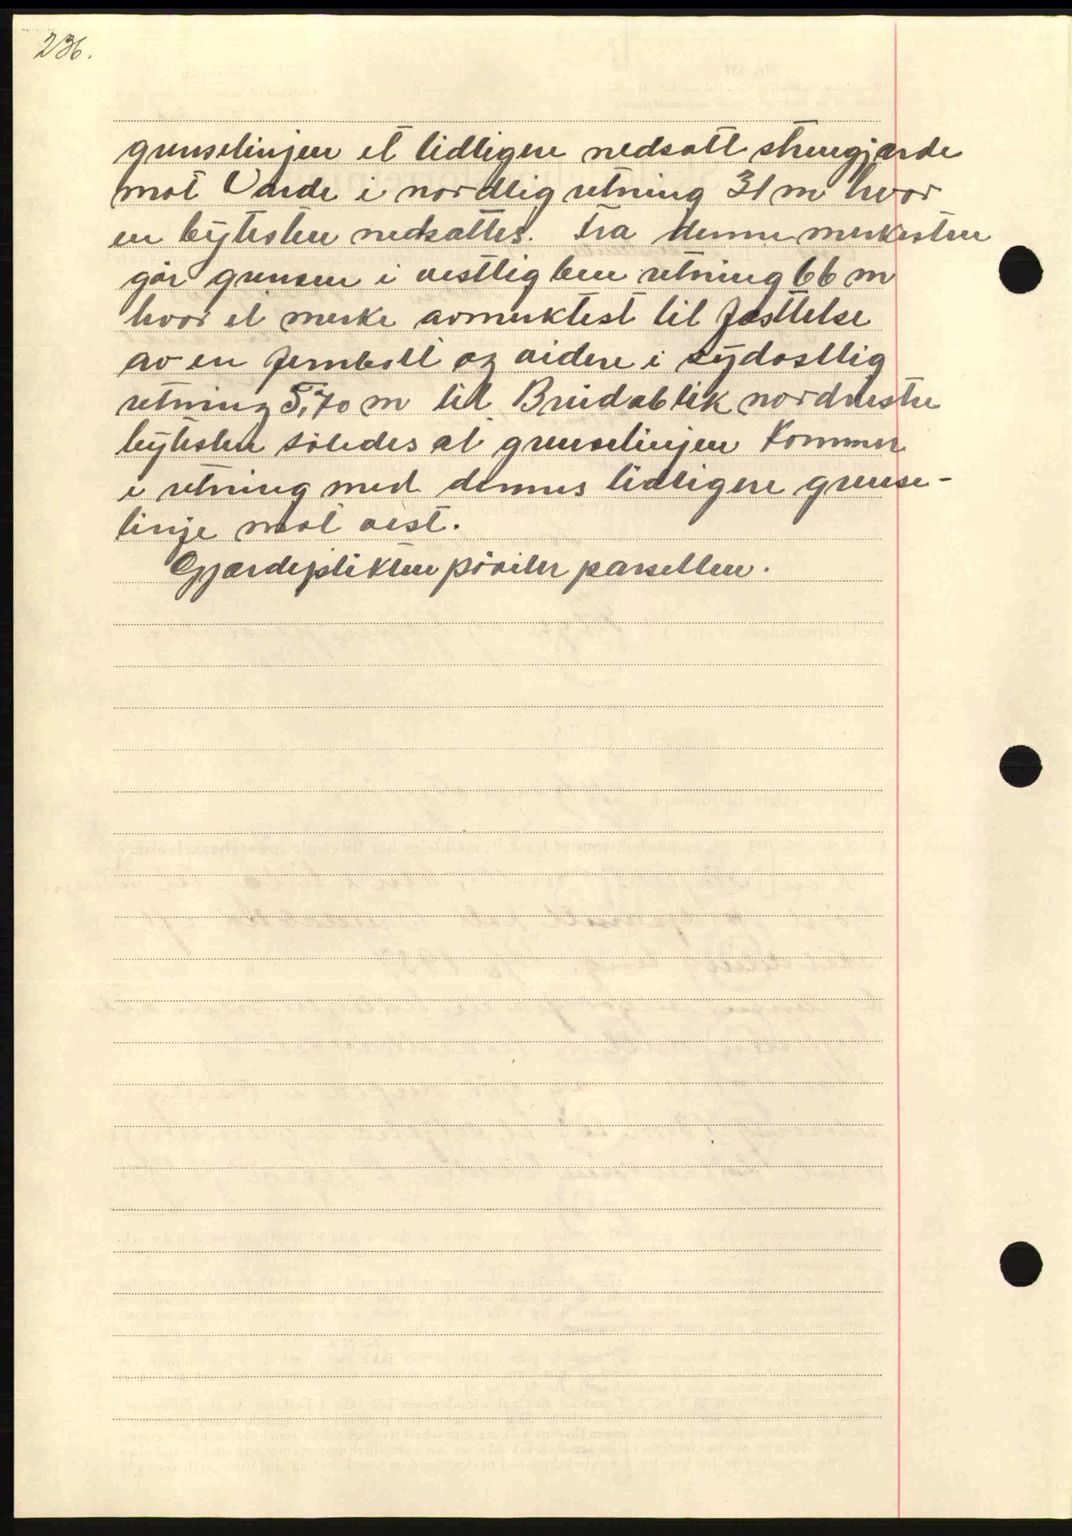 236.
grenselinjen et tidligere nedsatt strengjærde
mot Varde i nordlig retning 31 m hvor
en bytesten nedsattes. Fra denne merkesten
går grensen i vestlig ben retning 66 m
hvor et merke avmerktest til festtelse
av en jernbolt og videre i sydostlig
retning 5,70 m til Breidablik nordvestre
bytesten således at grenselinjen kommer
i retning med dennes tidligere grense-
linje mot vest.
Gjærdeplikten påviler parsellen.